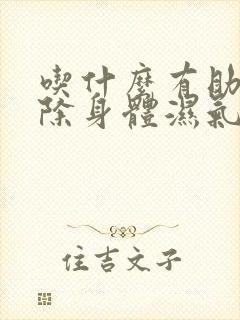 喫什麼有助
除身體濕氣
住吉文子